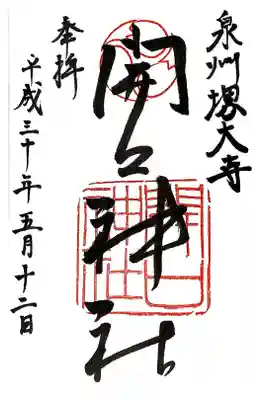 泉州堺大寺
開口神社
開口
神社
奉拝
平成三十年五月十二日